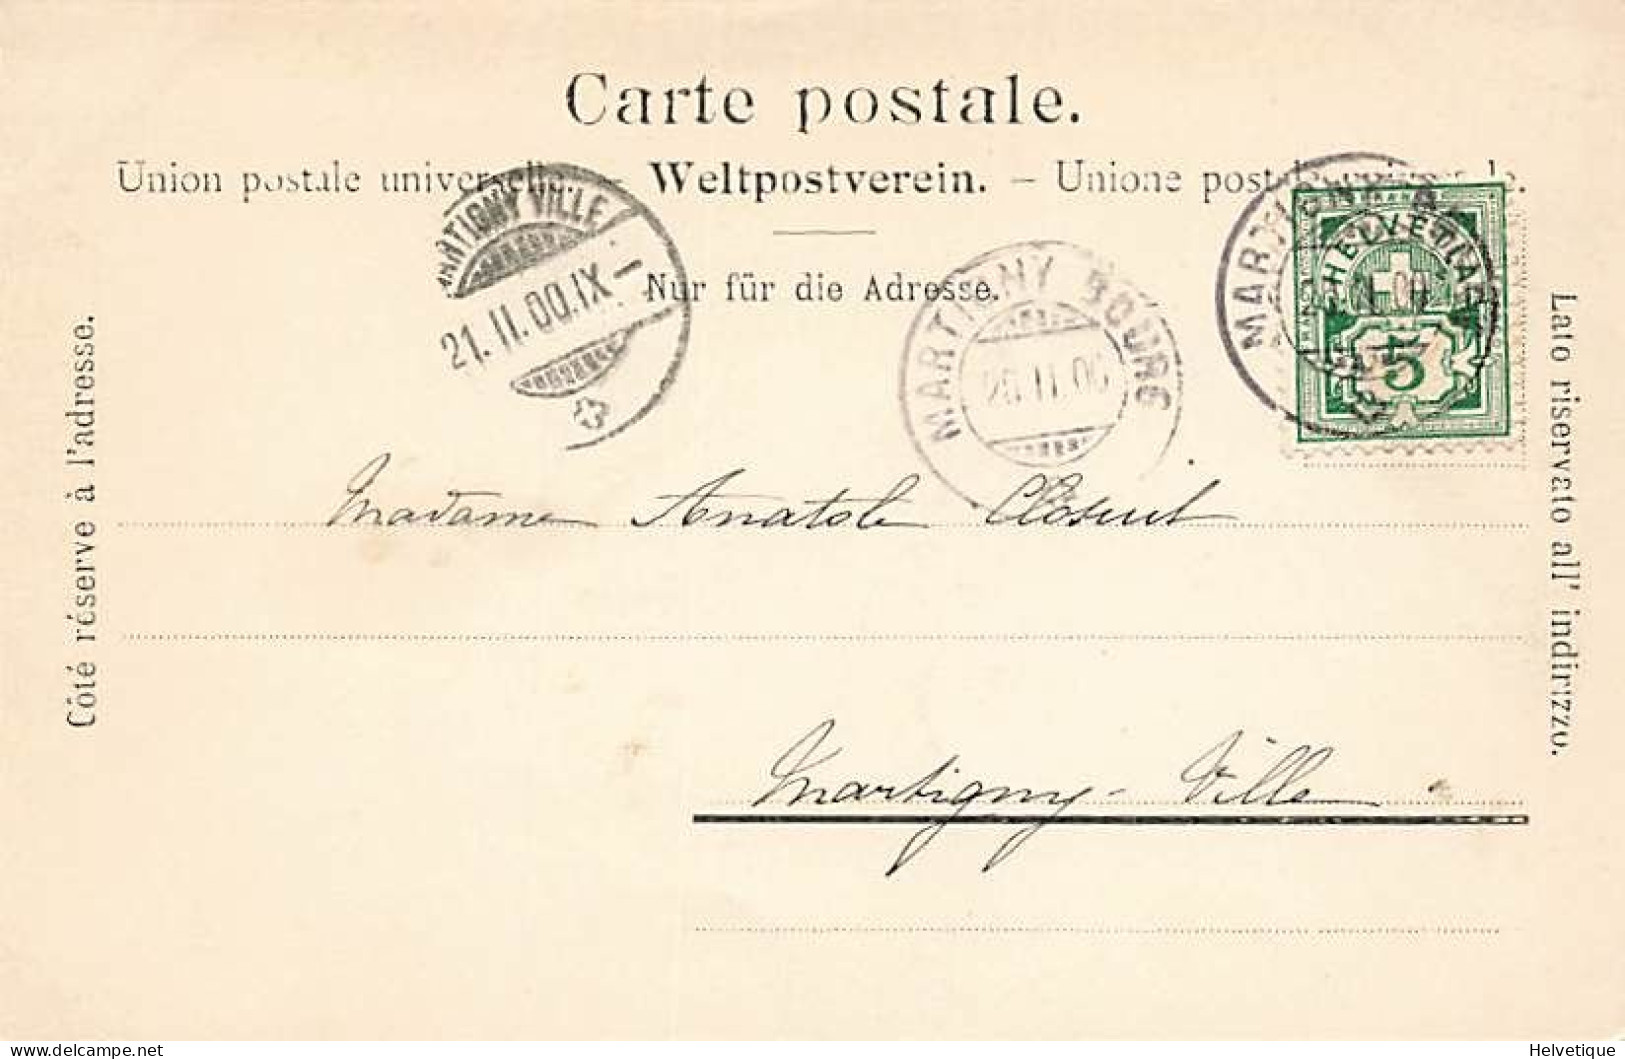 Carte postale.
Union postale universelle. – Weltpostverein. – Unione postale
Nur für die Adresse.
MARTIGNY VILLE
21.II.00.IX–
MARTIGNY BOURG
20.II.00
HELVETIA
5
Côté réservé à l'adresse.
Lato riservato all' indirizzo.
Madame Anatole Closuit
Martigny-Ville
delcampe.net
Helvetique